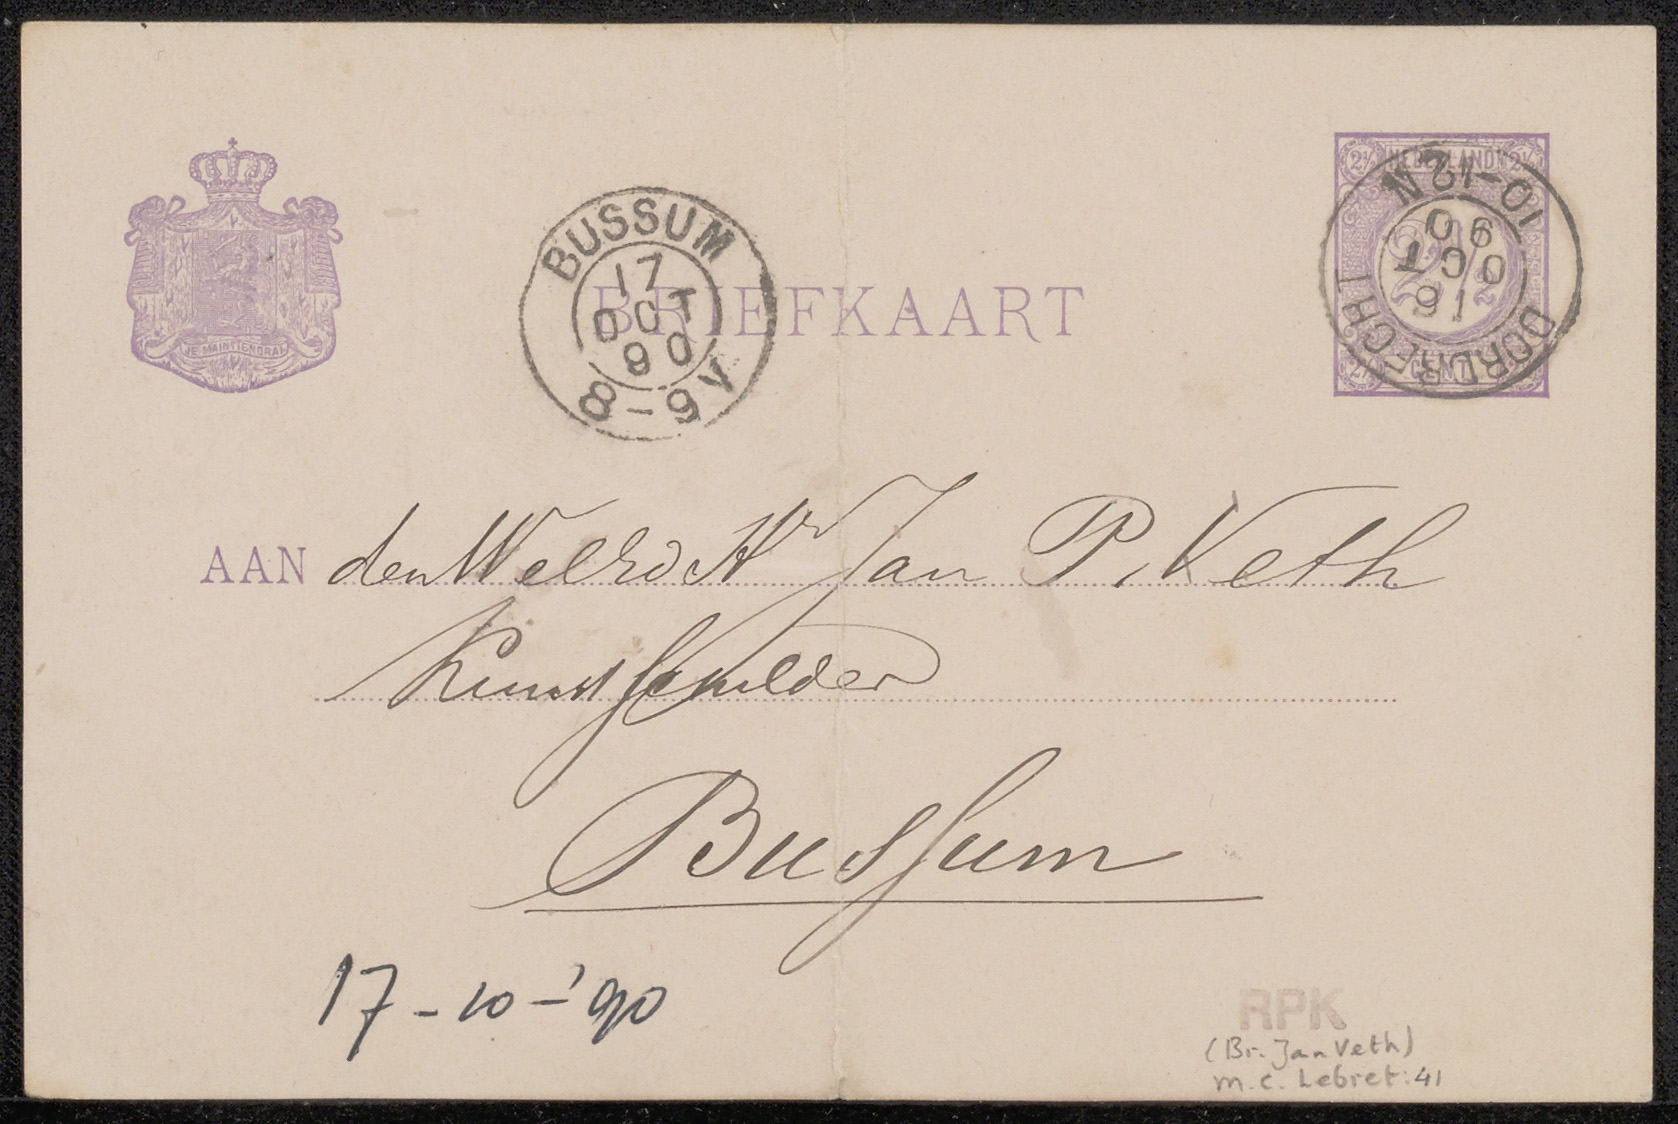 JE MAINTIENDRAI
BUSSUM
17
OCT
90
8-9V
BRIEFKAART
2½ NEDERLAND 2½
2½
2½ CENT
DORDRECHT
16
OCT
90
10-12N
AAN den WelEd Hr Jan P. Veth
Kunstschilder
Bussum
17-10-'90
RPK
(Br. Jan Veth)
M.C. Lebret: 41